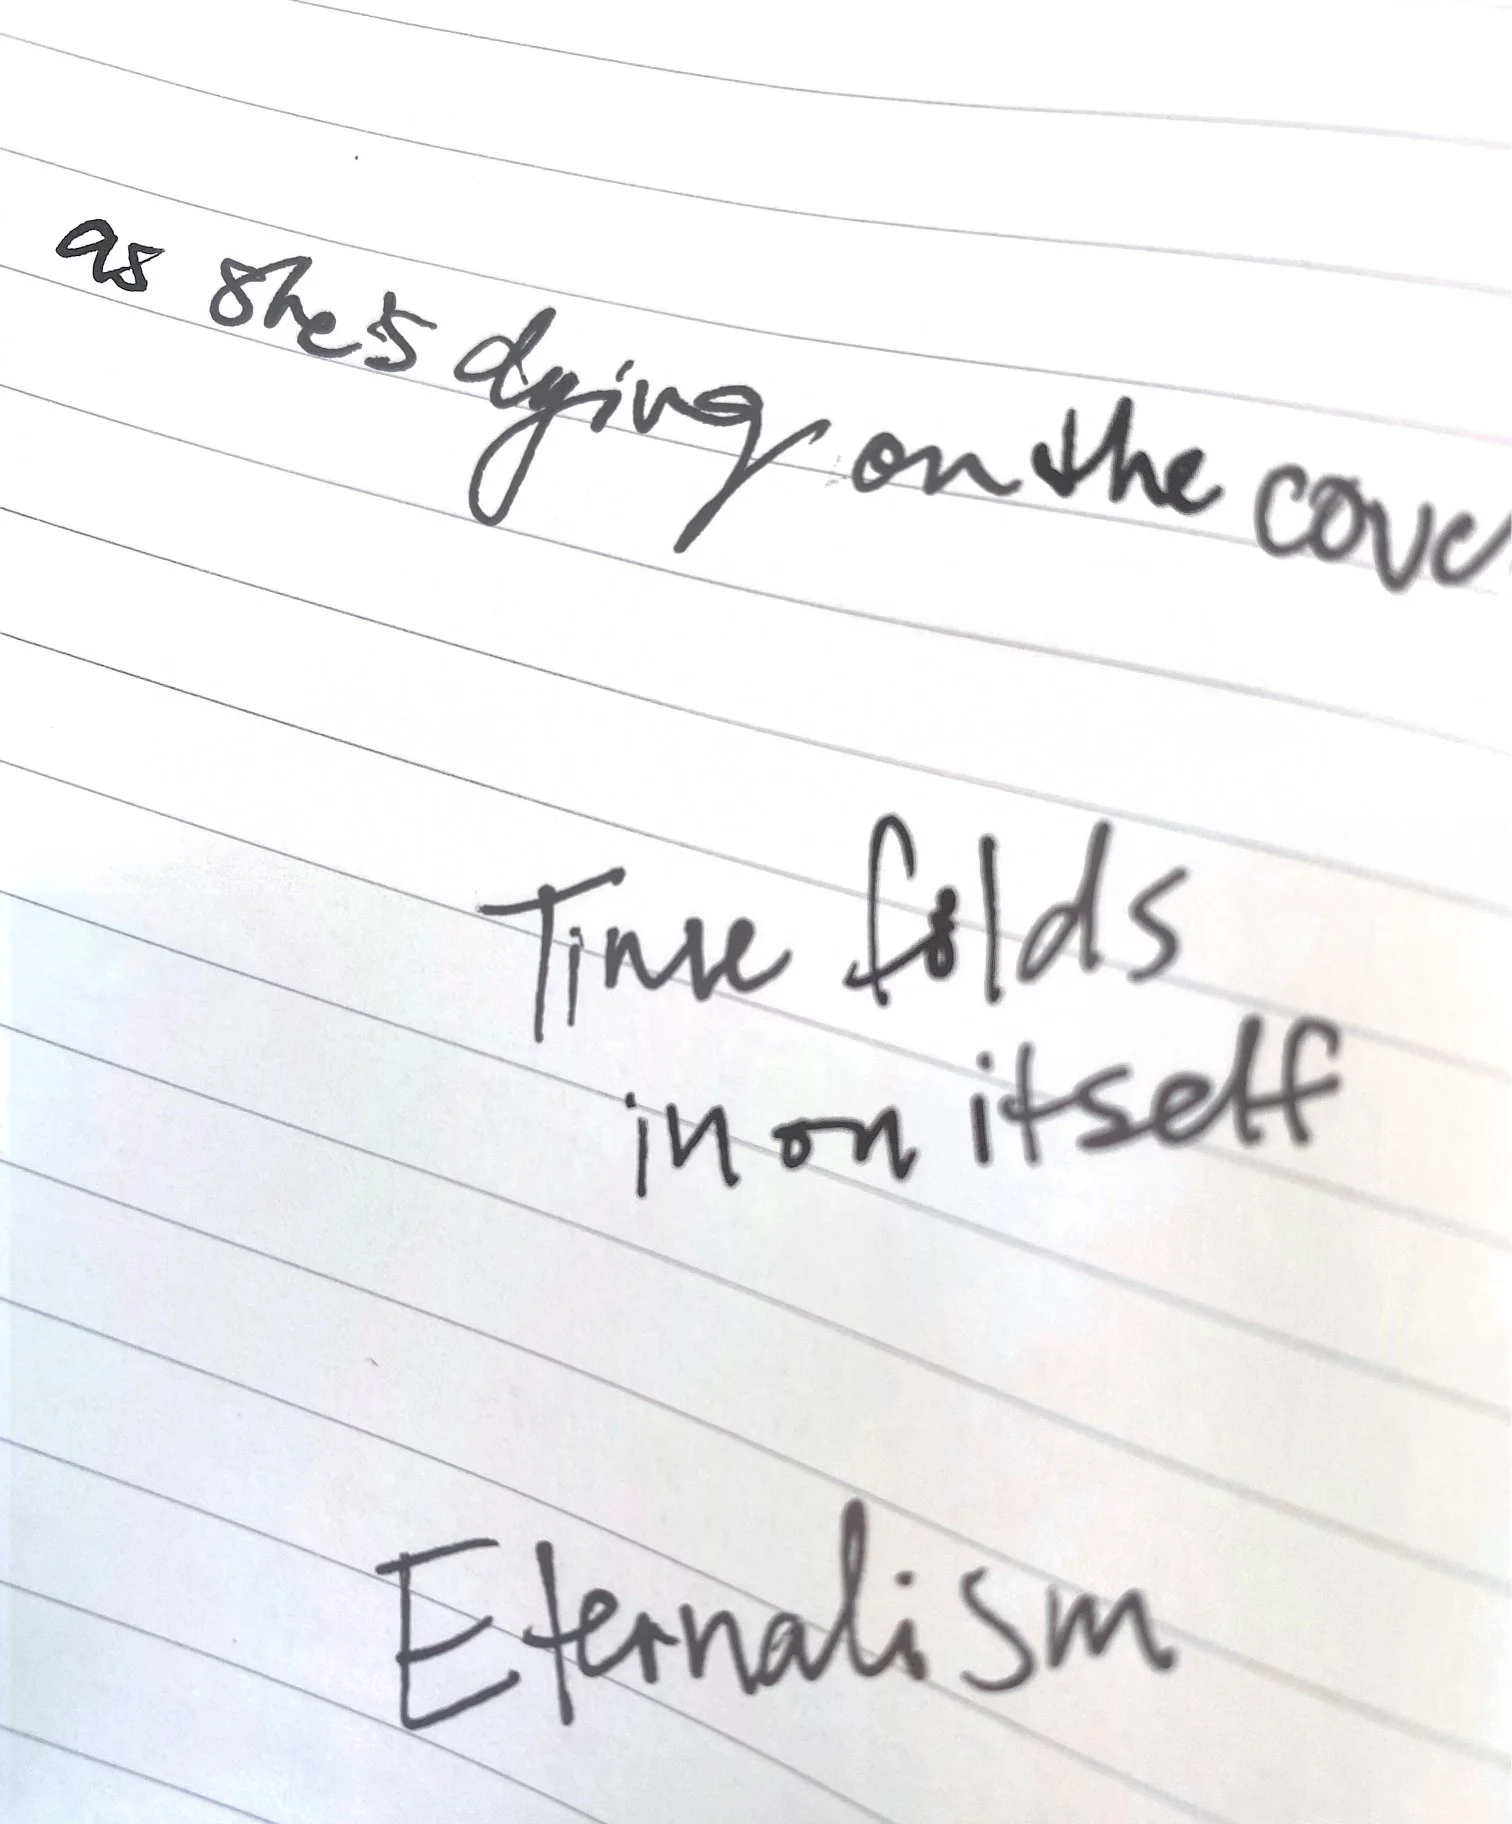 as she's dying on the cove
Time folds
in on itself
Eternalism